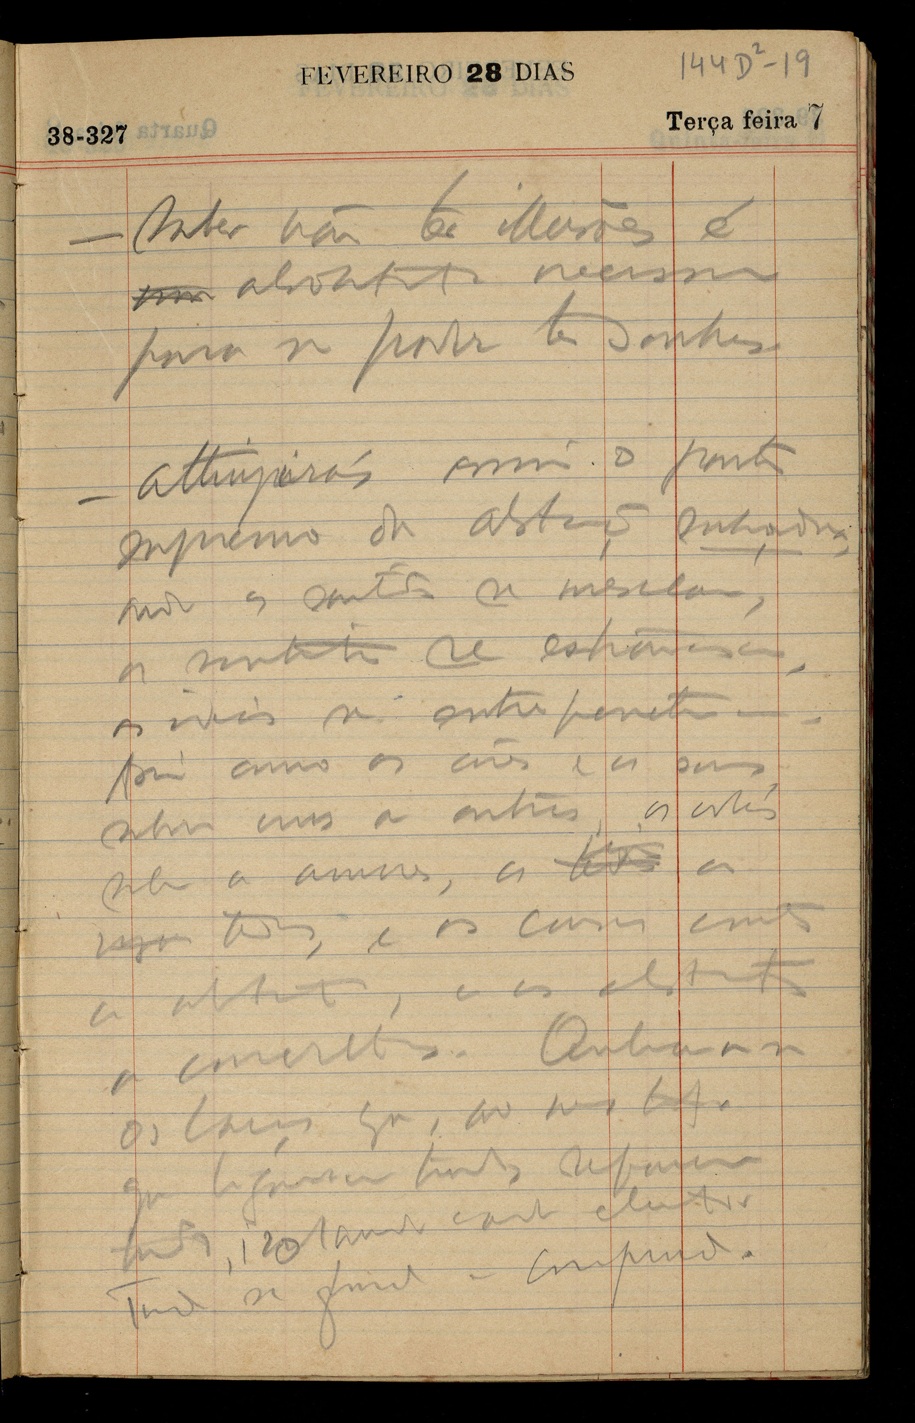 FEVEREIRO 28 DIAS
144D²-19
38-327
Terça feira 7
— Saber não ter illusões é
absolutamente necessario
para se poder ter sonhos.
— Attingirás assim o ponto
supremo da abstenção sonhadora,
onde os sentidos se mesclam,
os sentimentos se extravasam,
as idéas se entrepenetram.
Assim como as côres e os sons
sabem uns a outros, os odios
sabem a amores, e as
cousas concretas
a abstractas, e as abstractas
a concretas. Quebram-se
os laços que, ao mesmo tempo
que ligavam tudo, separavam
tudo, isolando cada elemento.
Tudo se funde e confunde.